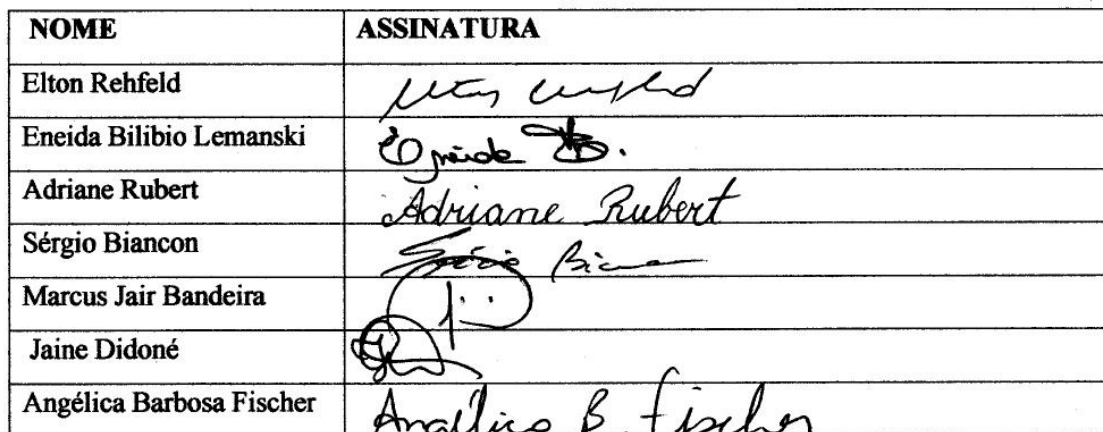 NOME ASSINATURA
Elton Rehfeld
Eneida Bilibio Lemanski Eneida B.
Adriane Rubert Adriane Rubert
Sérgio Biancon Sérgio
Marcus Jair Bandeira
Jaine Didoné
Angélica Barbosa Fischer Angélica B. Fischer